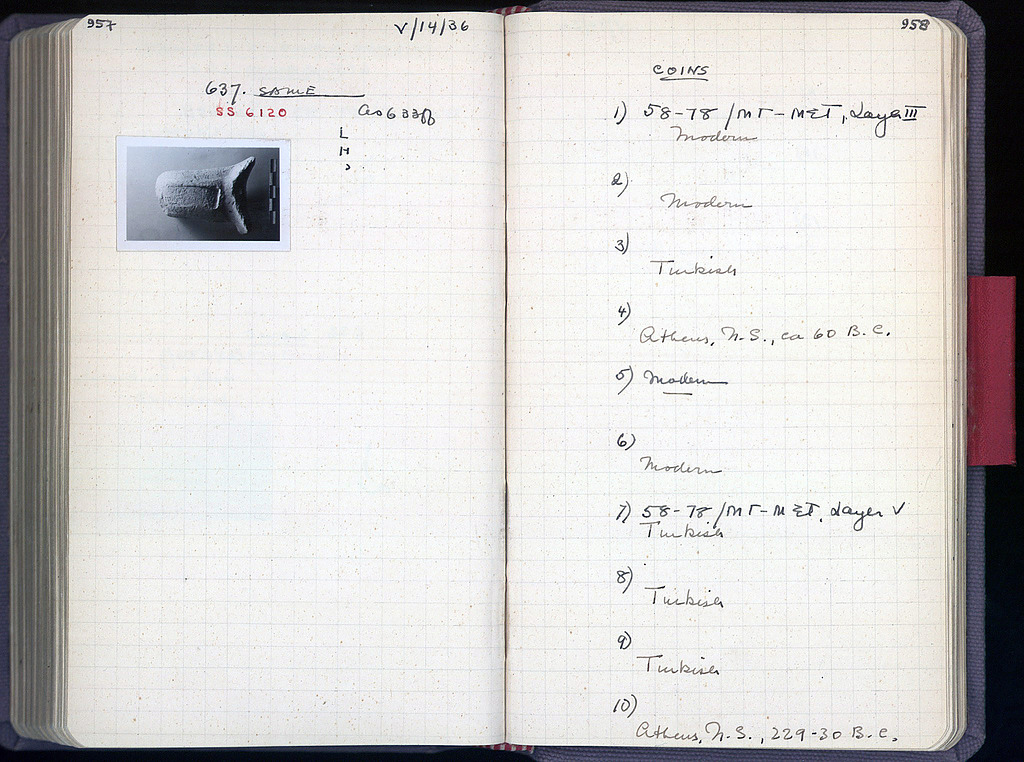 957
V/14/36
637. SAME
SS 6120
As 633ff
L
H
958
COINS
1) 58-78/ΜΓ-ΜΞΤ, Layer III
Modern
2)
Modern
3)
Turkish
4)
Athens, N.S., ca 60 B.C.
5) Modern
6)
Modern
7) 58-78/ΜΓ-ΜΞΤ, Layer V
Turkish
8)
Turkish
9)
Turkish
10)
Athens, N.S., 229-30 B.C.